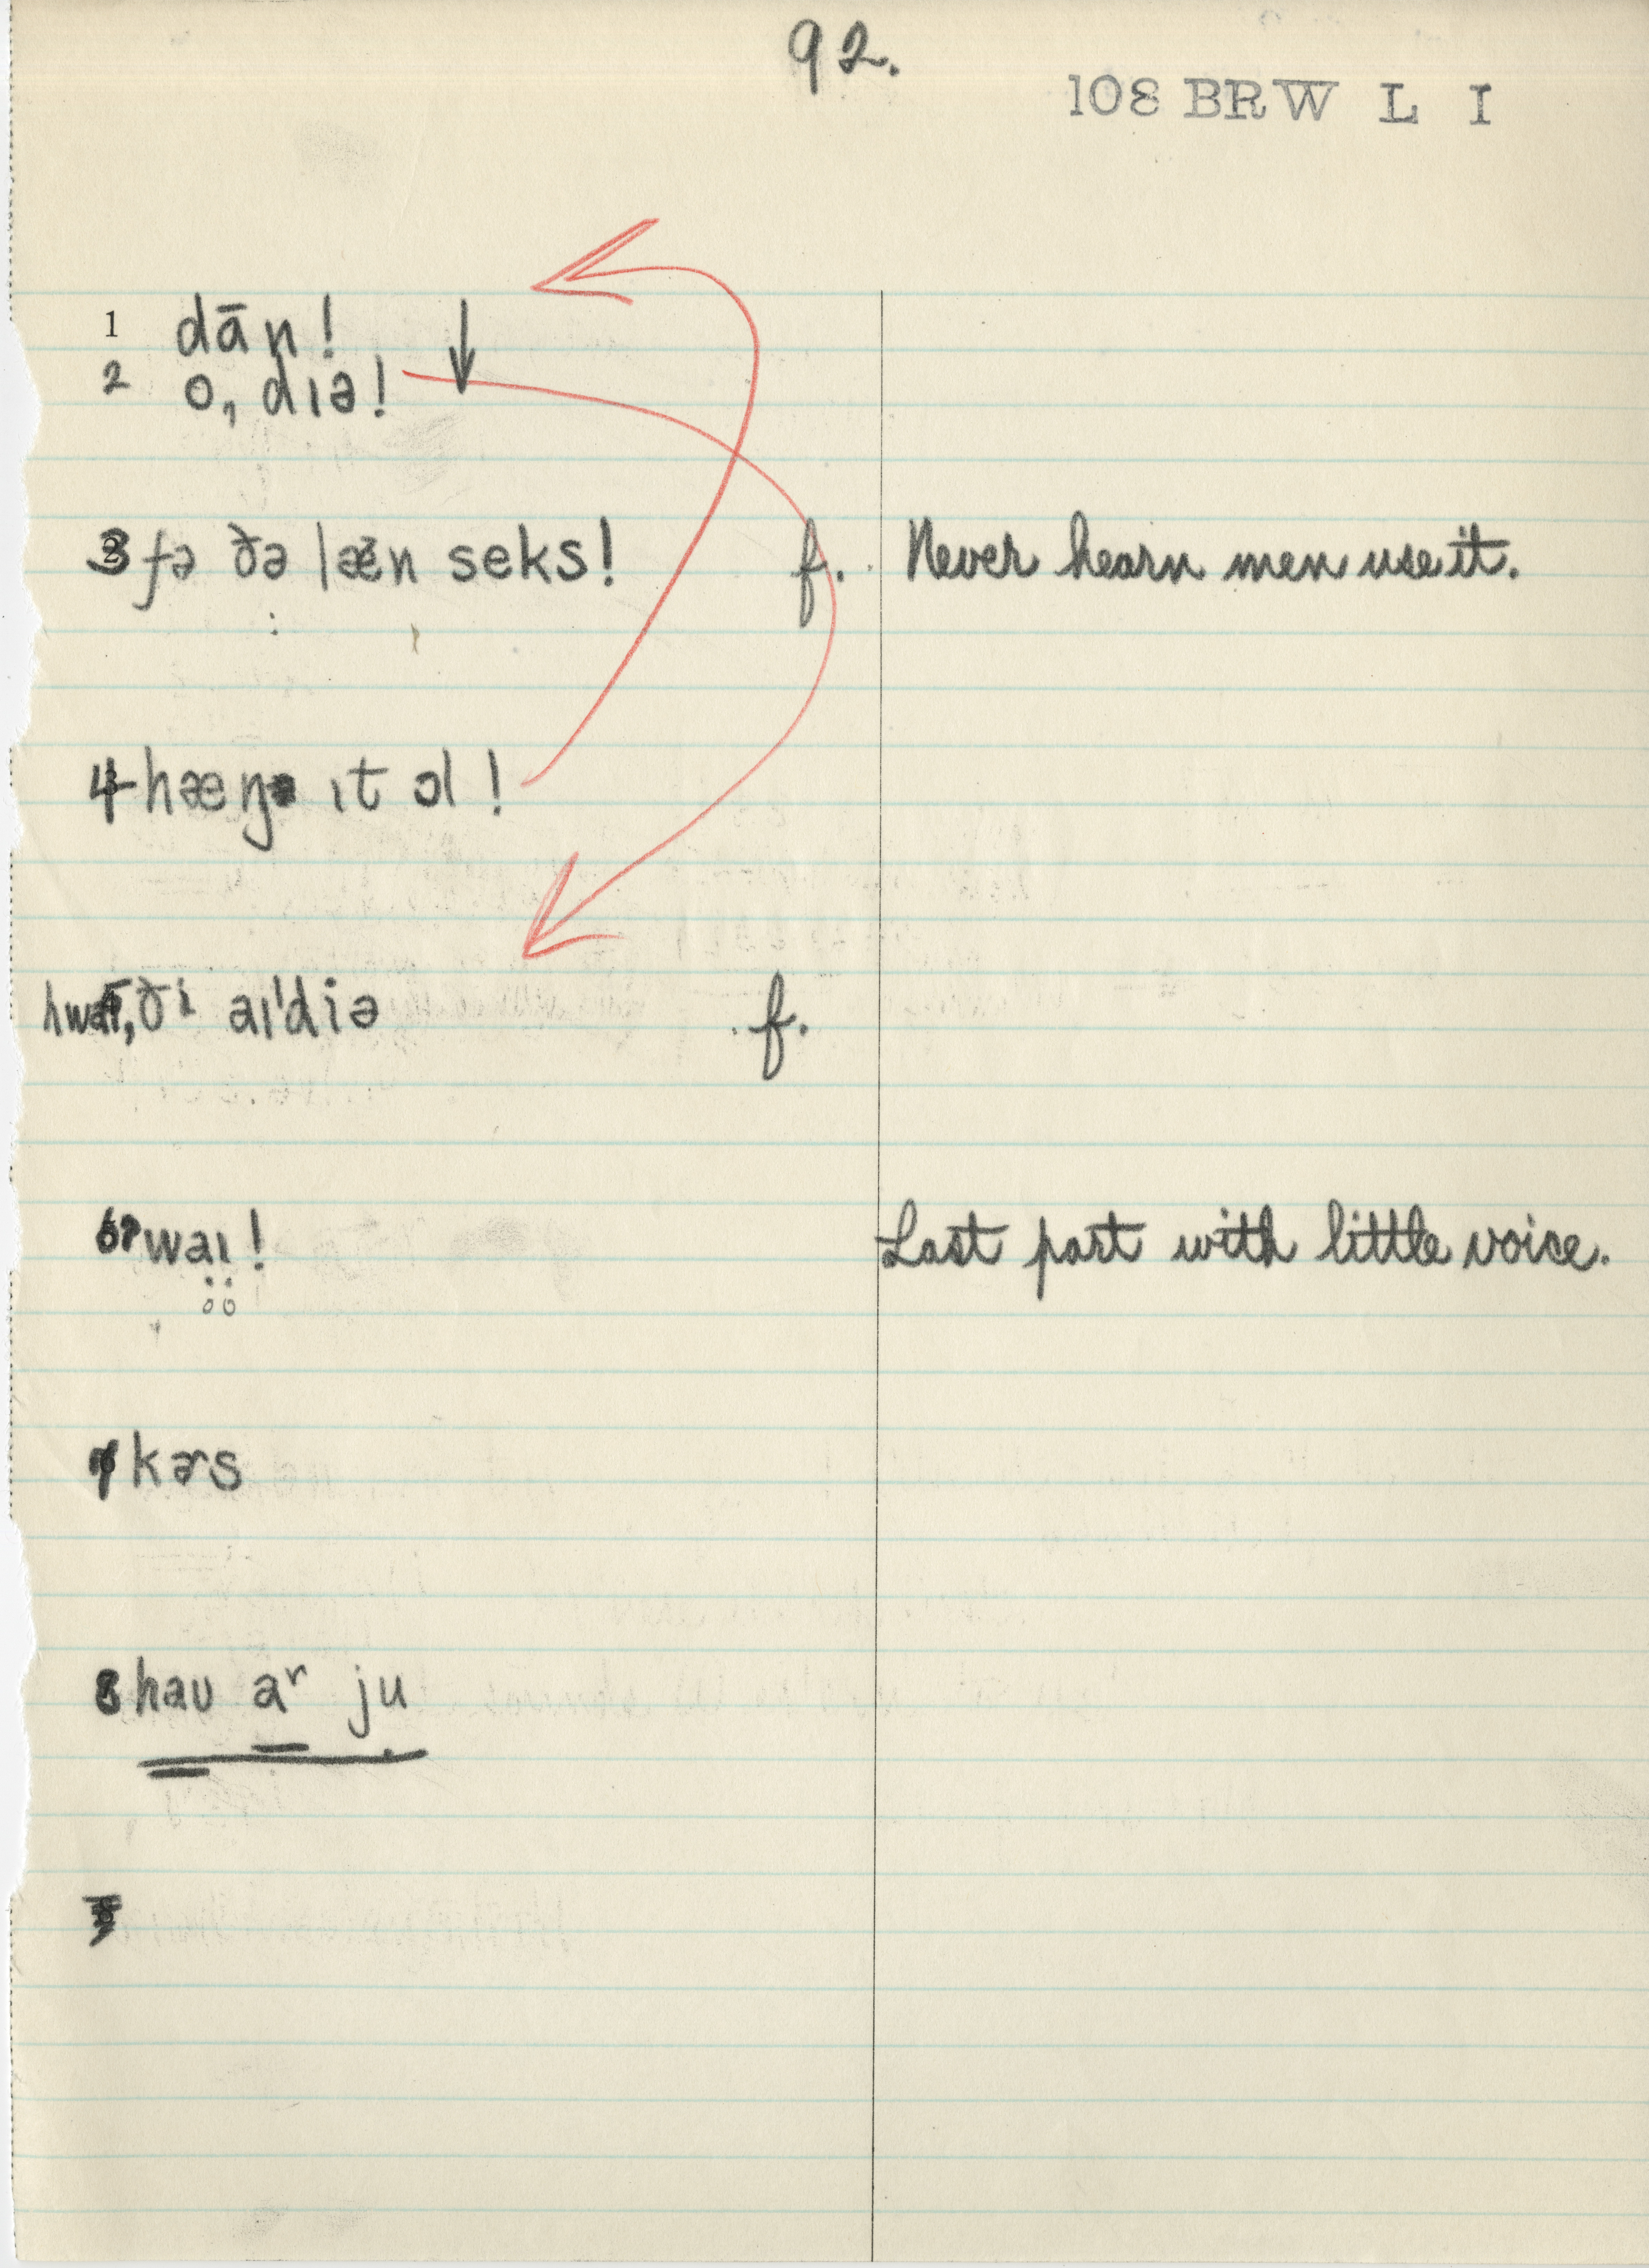 92.
108 BRW L I
1 dān! ↓
2 o, dɪə!
3 fə ðə læn seks! f. Never hearn men use it.
4 hæŋ ɪt ɔl!
ði aɪ'diə f.
6 waɪ! Last part with little voice.
7 kɚs
8 haʊ aʳ ju